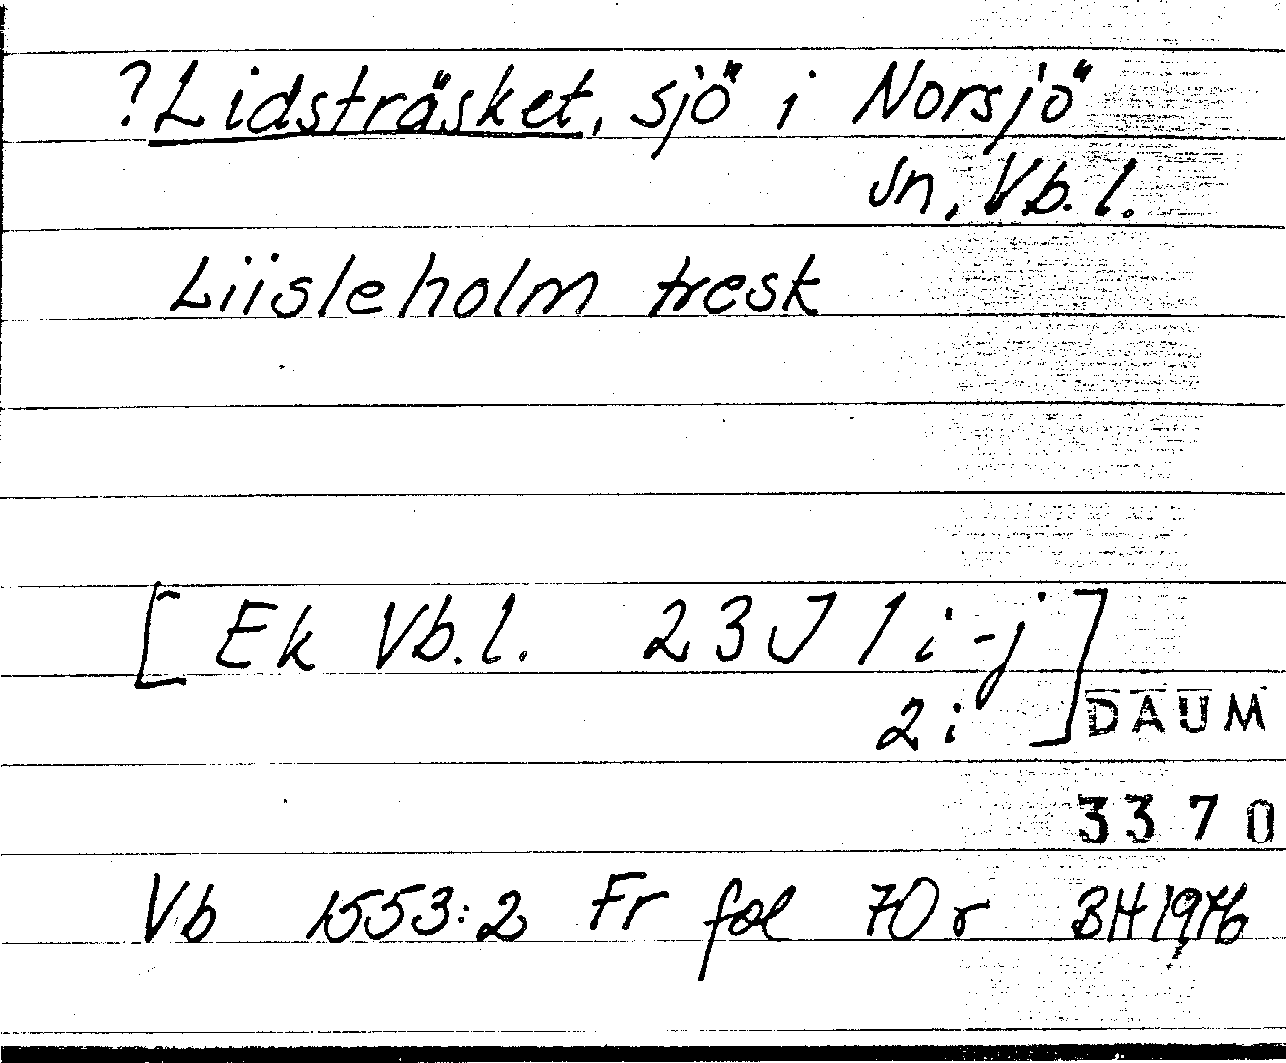 ?Lidsträsket, sjö i Norsjö
sn, Vb. l.
Liisleholm tresk
[Ek Vb. l. 23J 1 i-j
2 i]
DAUM
3370
Vb 1553:2 Fr fol 70 r BH 1976